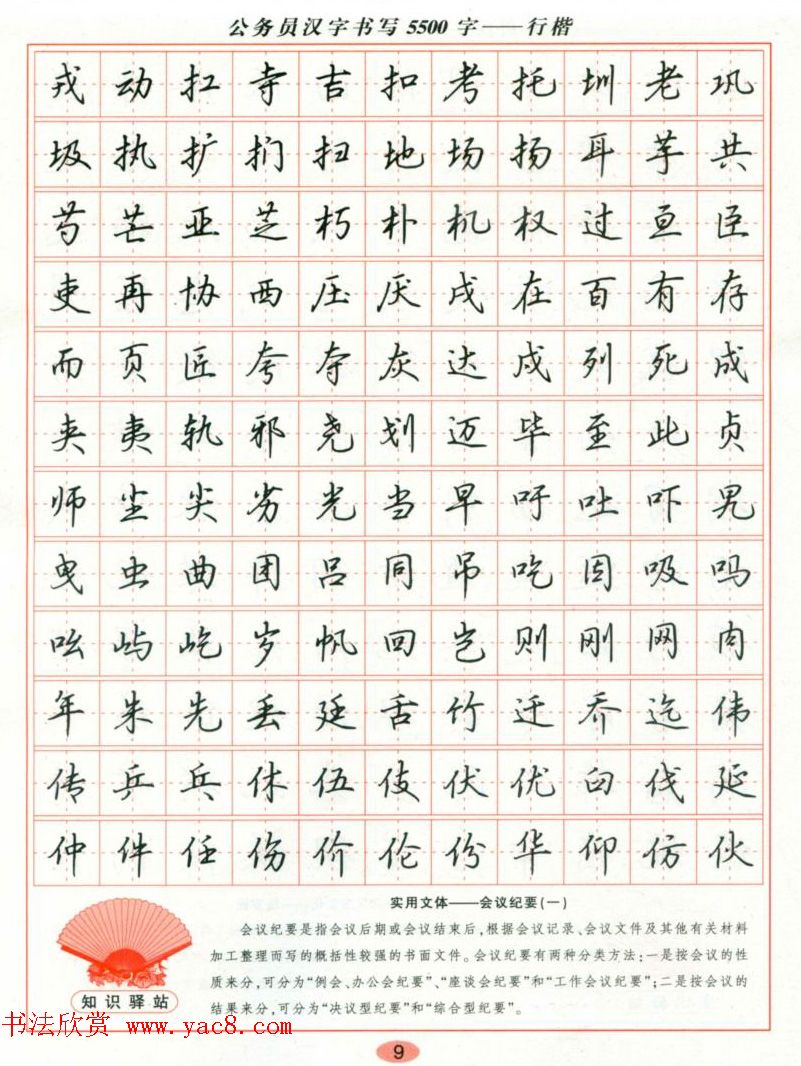 公务员汉字书写5500字——行楷
戎动扛寺吉扣考托圳老巩
圾执扩扪扫地场扬耳芋共
芍芒亚芝朽朴机权过亘臣
吏再协西压厌戌在百有存
而页匠夸夺灰达戍列死成
夹夷轨邪尧划迈毕至此贞
师尘尖劣光当早吁吐吓男
曳虫曲团吕同吊吃因吸吗
吆屿屹岁帆回岂则刚网肉
年朱先丢廷舌竹迁乔迄伟
传乒乓休伍伎伏优臼伐延
仲件任伤价伦份华仰仿伙
实用文体——会议纪要(一)
会议纪要是指会议后期或会议结束后,根据会议记录、会议文件及其他有关材料
加工整理而写的概括性较强的书面文件。会议纪要有两种分类方法:一是按会议的性
质来分,可分为“例会、办公会纪要”、“座谈会纪要”和“工作会议纪要”;二是按会议的
结果来分,可分为“决议型纪要”和“综合型纪要”。
知识驿站
书法欣赏 www.yac8.com
9